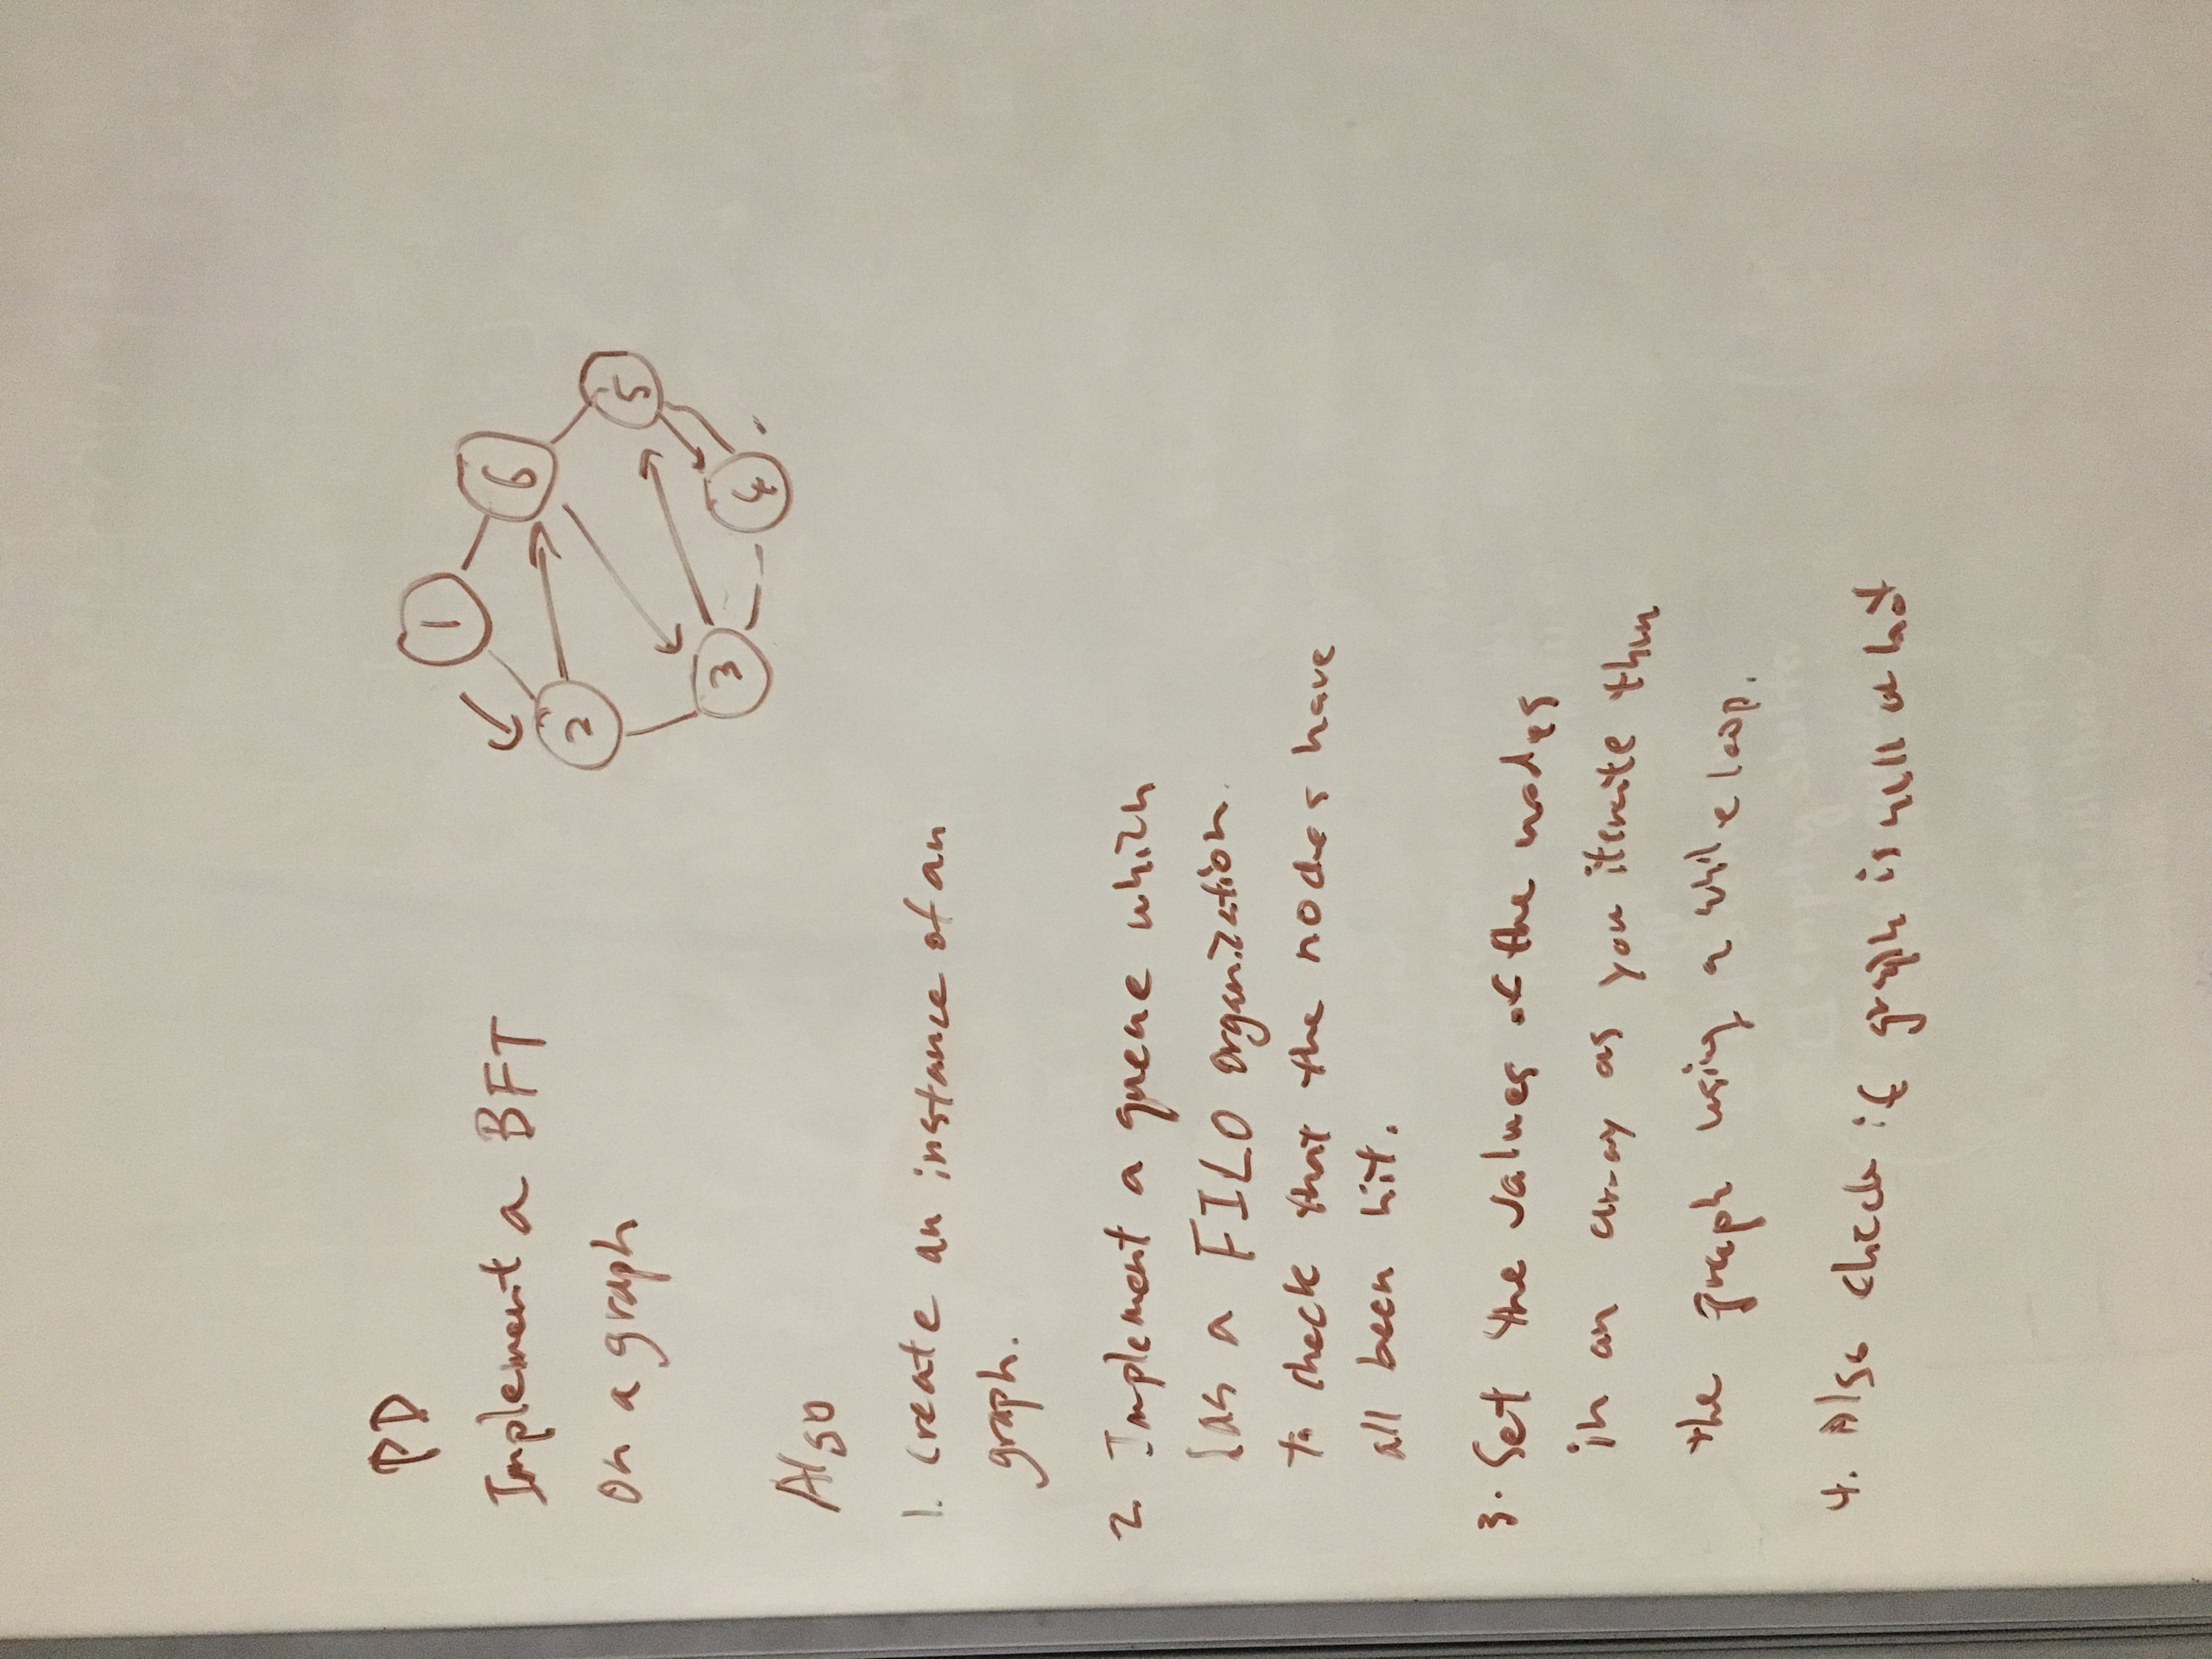 PD
Implement a BFT
on a graph
1
6
2
5
3
4
Also
1. Create an instance of an
graph.
2. Implement a queue which
has a FILO organization.
to check that the nodes have
all been hit.
3. Set the values of the nodes
in an array as you iterate thru
the graph using a while loop.
4. Also check if graph is null or not